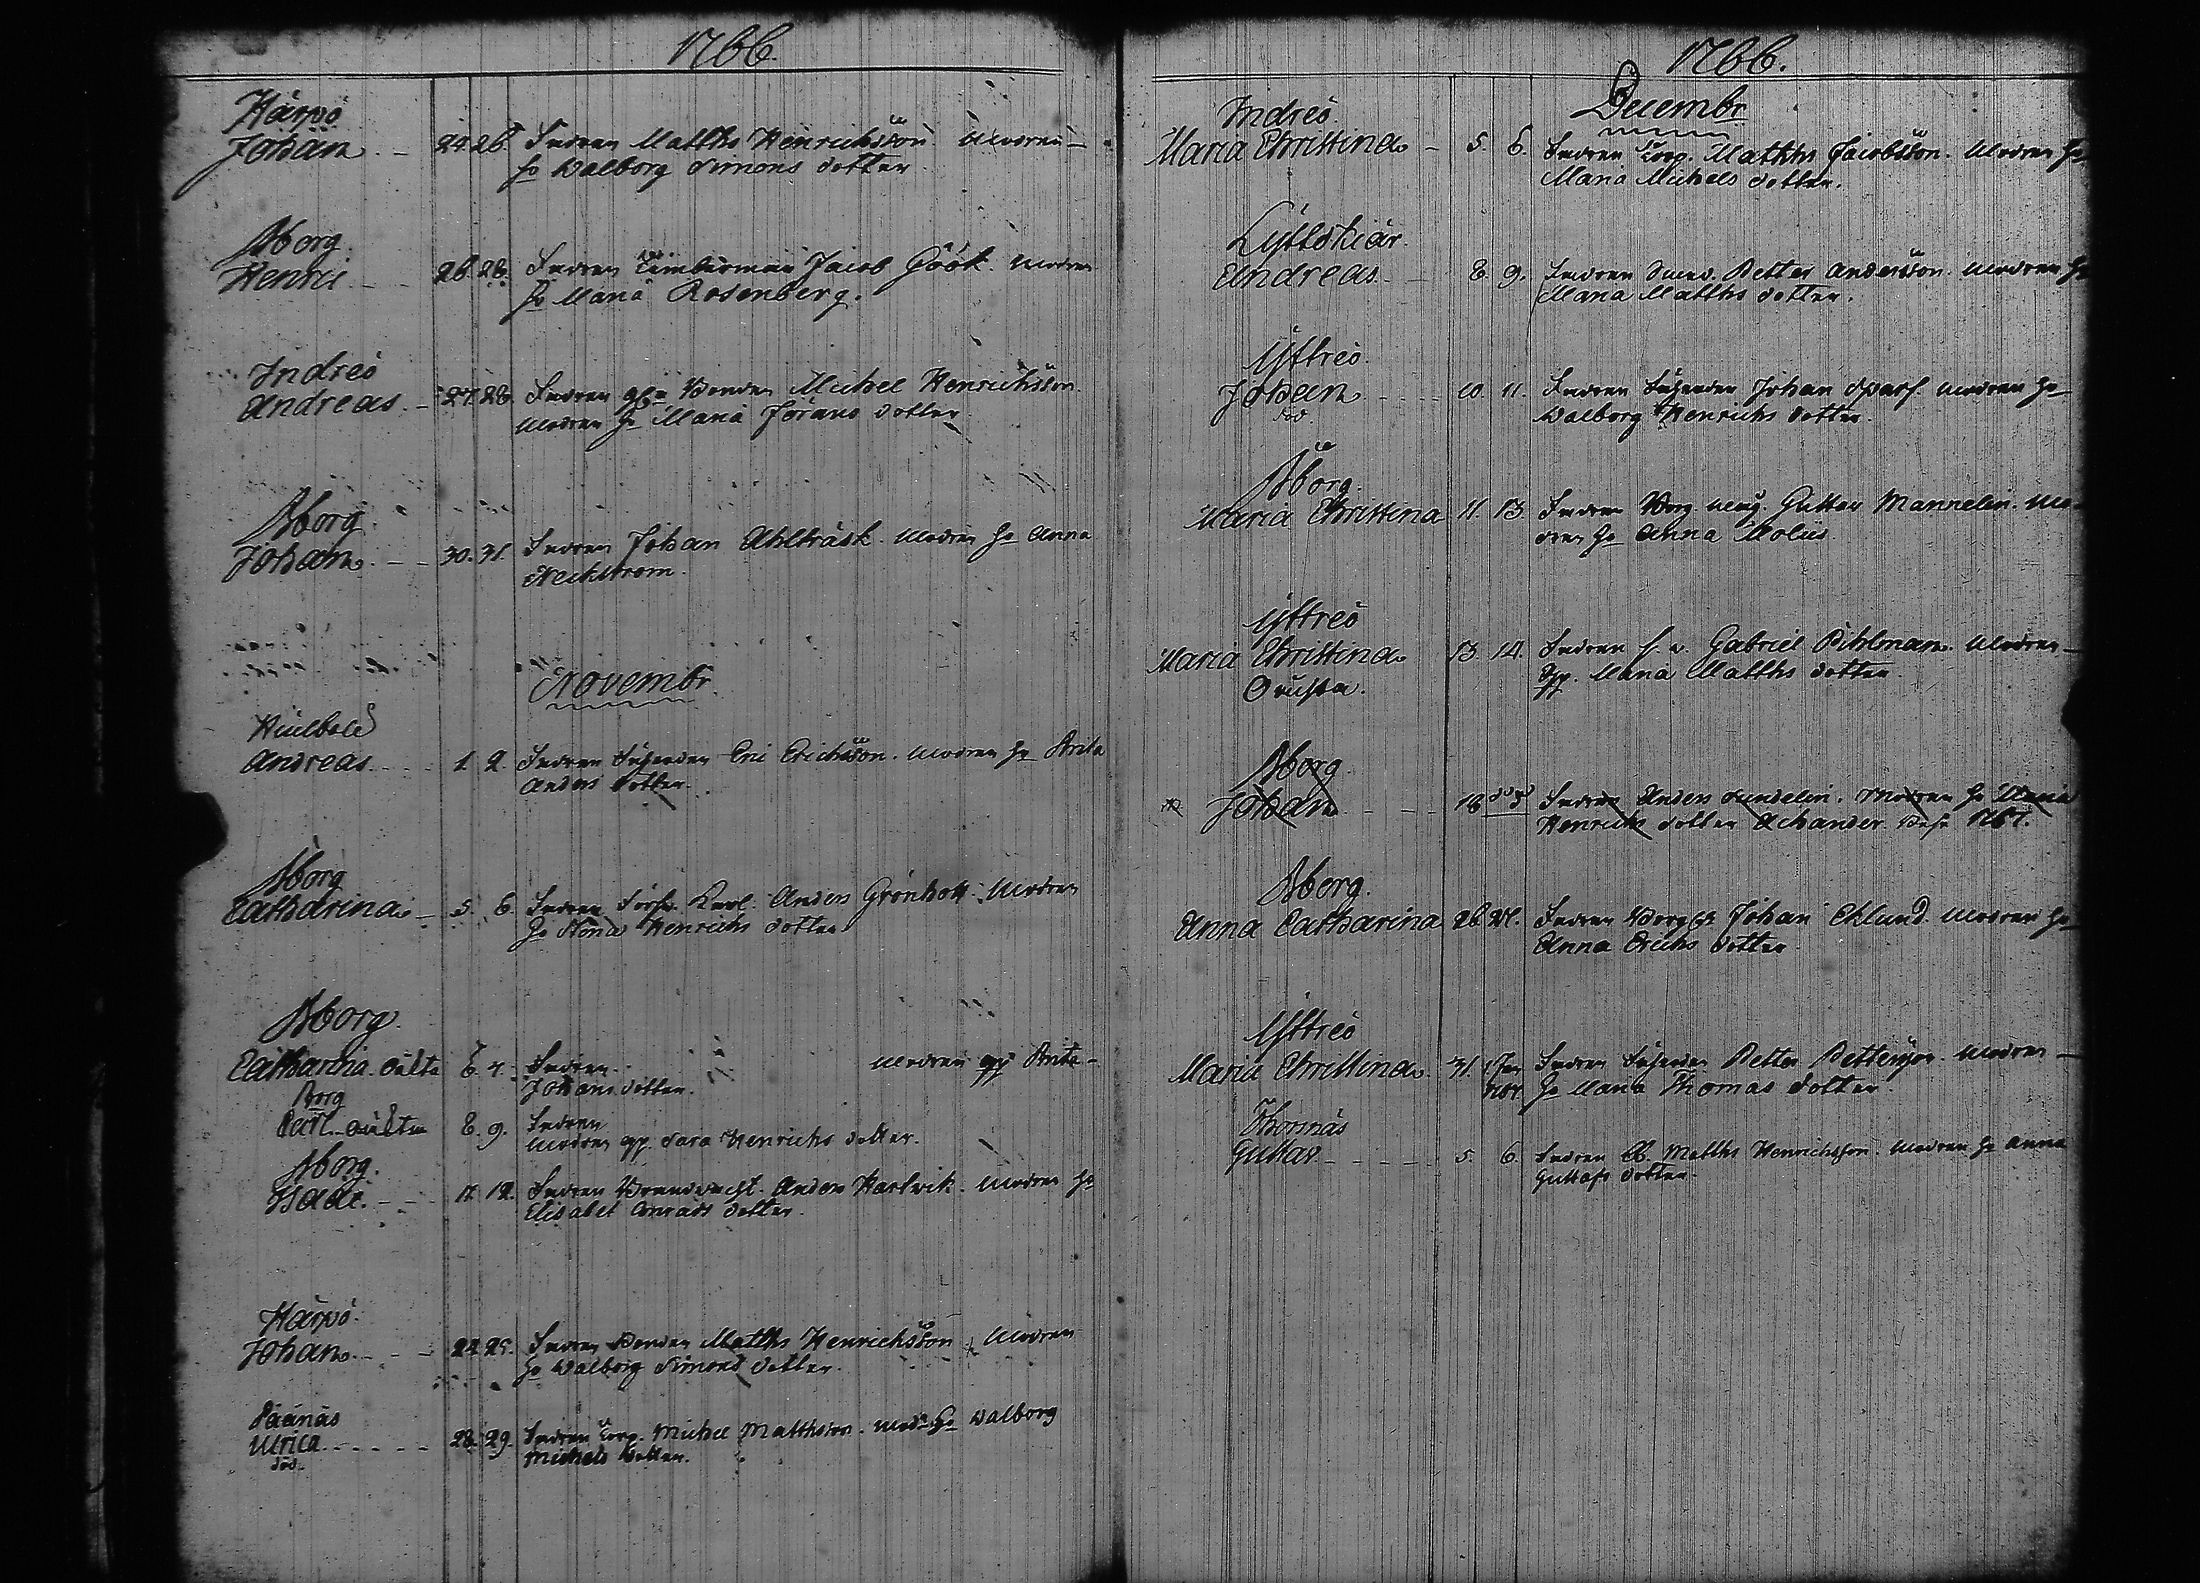 1766.
Härpö
Johan 24. 26. Fadren Matths Henrichsson Modren
H: Walborg Simons dotter
Aborg
Henric 26. 28. Fadren Timberman Jacob Göök. Modren
H: Maria Rosenberg.
Indreö
Andreas 27. 28. Fadren Bonden Michel Henrichsson
Modren H: Maria Jörans dotter
Aborg
Johan 30. 31. Fadren Johan Ahlträsk. Modren H: Anna
Neckström.
Novembr
Andreas 1. 2. Fadren Eric Erichsson. Modren H: Brita
Anders dotter.
Aborg
Catharina 5. 6. Fadren Anders Grönholt. Modren
H: Henrichs dotter
Aborg
Catharina oäkta Fadren Modren Brita
Johans dotter.
Borg
Carl oäkta 8. 9. Fadren
Modren Sara Henrichs dotter.
Aborg.
Isaac. 11. 12. Fadren Anders Hartwik. Modren H:
Elisabet Conrads dotter.
Härpö.
Johan 24. 25. Fadren Bonden Matths Henrichsson Modren
H: Walborg Simons dotter.
Ulrica 28. 29. Fadren Torp. Michel Matthsson. H: Walborg
död Michels dotter.
1766.
Decembr
Indreö.
Maria Christina 5. 6. Fadren Torp. Matths Jacobsson. Modren H:
Maria Michels dotter.
Andreas 8. 9. Fadren Petter Andersson. Modren H:
Maria Matths dotter.
Yttreö.
Johan 10. 11. Fadren Johan Sparf. Modren H:
död Walborg Henrichs dotter.
Aborg.
Maria Christina 11. 13. Fadren Gustav Mannelin. Mo-
dren H: Anna Moliis
Yttreö
Maria Christina 13. 14. Fadren Gabriel Pihlman. Modren
Maria Matths dotter.
Aborg
Johan 18 Fadren Anders Sundelin. Modren H: Maria
Henrichs dotter Achander 1767.
Aborg.
Anna Catharina 26. 27. Fadren Johan Eklund. Modren H:
Anna Erichs dotter
Yttreö
Maria Christina 31. Fadren Petter Pettersson. Modren
H: Maria Thomas dotter
Gustav 5. 6. Fadren Matths Henrichsson. Modren H: Anna
Gustafs dotter.